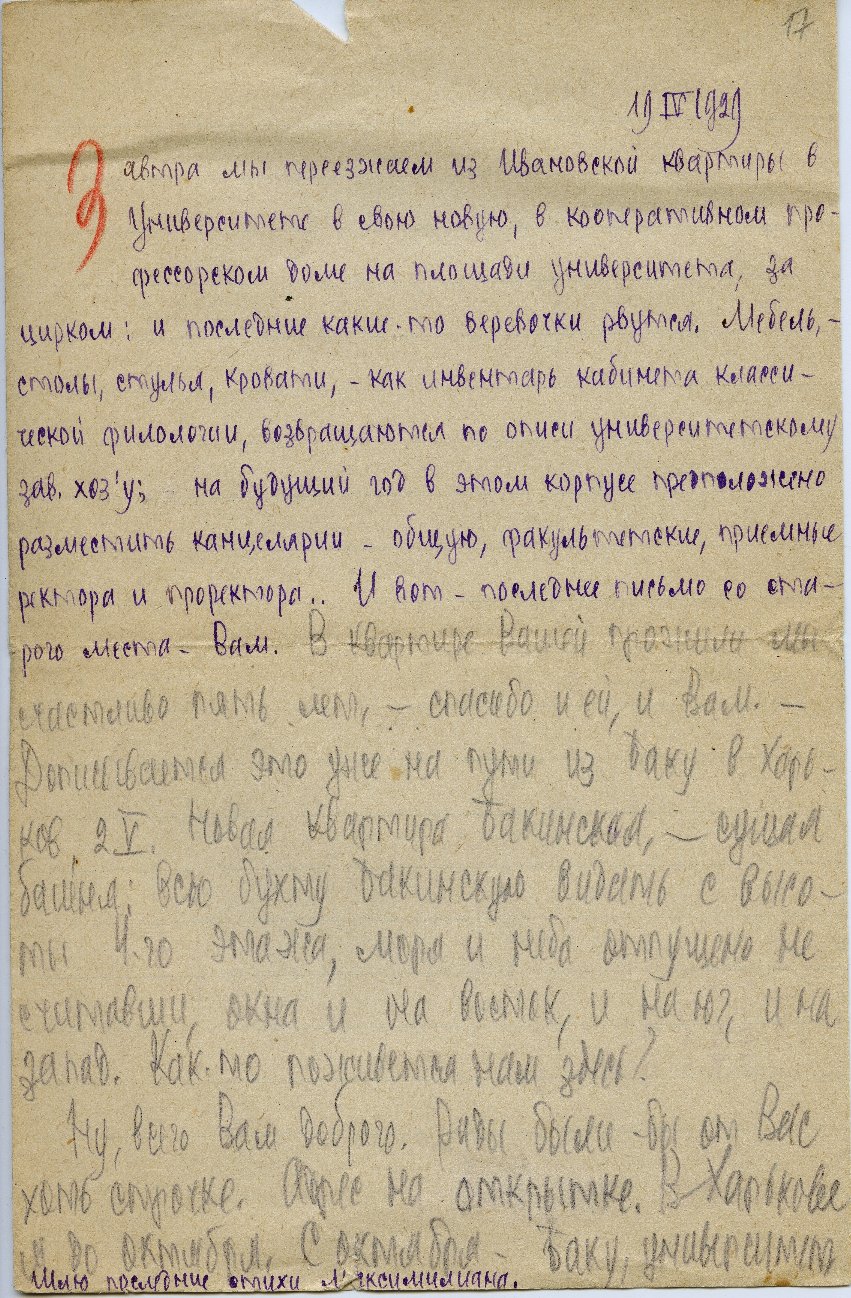 17
19 IV 1929
Завтра мы переезжаем из Ивановской квартиры в
Университете в свою новую, в кооперативном про-
фессорском доме на площади университета, за
цирком: и последние какие-то веревочки рвутся. Мебель, -
столы, стулья, кровати, - как инвентарь кабинета класси-
ческой филологии, возвращаются по описи университетскому
зав. хоз'у; - на будущий год в этом корпусе предположено
разместить канцелярии - общую, факультетские, приемные
ректора и проректора.. И вот - последнее письмо со ста-
рого места - Вам. В квартире Вашей прожили мы
счастливо пять лет, - спасибо и ей, и Вам. -
Дописывается это уже на пути из Баку в Харь-
ков 2 V. Новая квартира Бакинская, - сущая
башня: всю бухту Бакинскую видать с высо-
ты 4-го этажа, моря и неба отпущено не
считавши, окна и на восток, и на юг, и на
запад. Как-то поживется нам здесь?
Ну, всего Вам доброго. Рады были-бы от Вас
хоть строчке. Адрес на открытке. В Харькове
я до октября. С октября - Баку, университет
Шлю последние стихи Максимилиана.